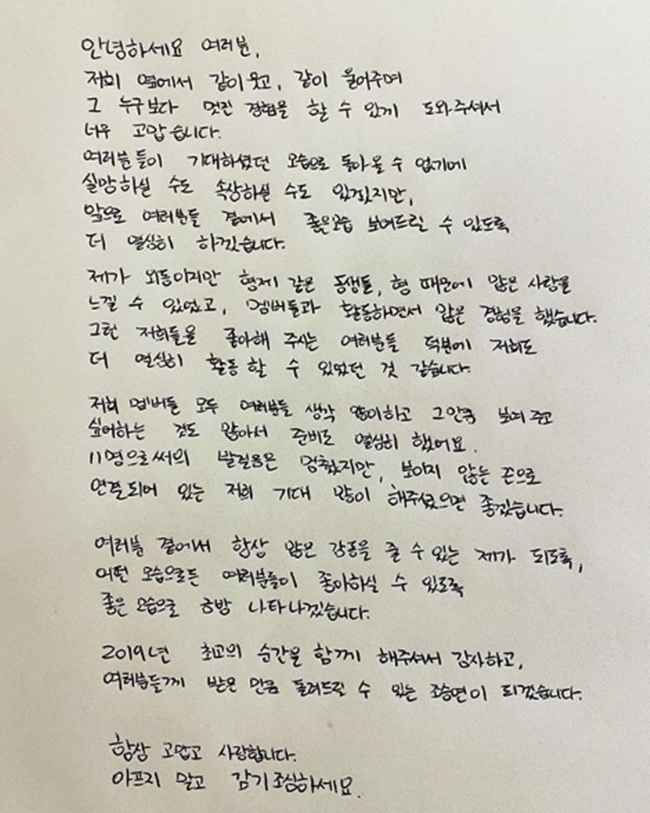 안녕하세요 여러분,
저희 옆에서 같이 웃고, 같이 울어주며
그 누구보다 멋진 경험을 할 수 있게 도와주셔서
너무 고맙습니다.
여러분들이 기대하셨던 모습으로 돌아올 수 없기에
실망하실 수도 속상하실 수도 있겠지만,
앞으로 여러분들 곁에서 좋은모습 보여드릴 수 있도록
더 열심히 하겠습니다.
제가 외동이지만 형제 같은 동생들, 형 때문에 많은 사랑을
느낄 수 있었고, 멤버들과 활동하면서 많은 경험을 했습니다.
그런 저희들을 좋아해 주시는 여러분들 덕분에 저희도
더 열심히 활동할 수 있었던 것 같습니다.
저희 멤버들 모두 여러분들 생각 많이하고 그만큼 보여주고
싶어하는 것도 많아서 준비도 열심히 했어요.
11명으로써의 발걸음은 멈췄지만, 보이지 않는 끈으로
연결되어 있는 저희 기대 많이 해주셨으면 좋겠습니다.
여러분 곁에서 항상 많은 감동을 줄 수 있는 제가 되도록,
어떤 모습으로든 여러분들이 좋아하실 수 있도록
좋은 모습으로 금방 나타나겠습니다.
2019년 최고의 순간을 함께 해주셔서 감사하고,
여러분들께 받은 만큼 돌려드릴 수 있는 조승연이 되겠습니다.
항상 고맙고 사랑합니다.
아프지 말고 감기조심하세요.